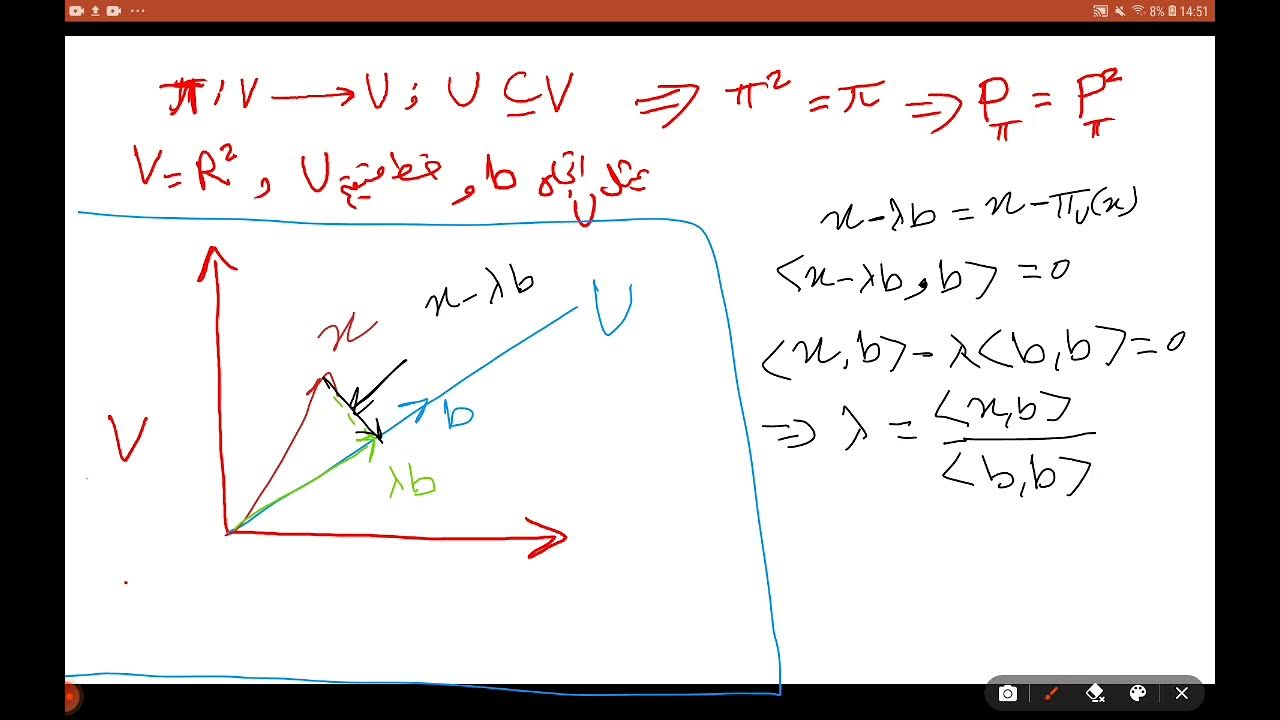 8% 14:51
π: V → V ; U ⊆ V ⇒ π² = π ⇒ P_π = P_π²
V = R² , U خط مستقيم , b تمثل اتجاه U
x - λb = x - π_U(x)
<x - λb, b> = 0
<x, b> - λ<b, b> = 0
⇒ λ = <x, b> / <b, b>
x - λb
U
x
b
V
λb